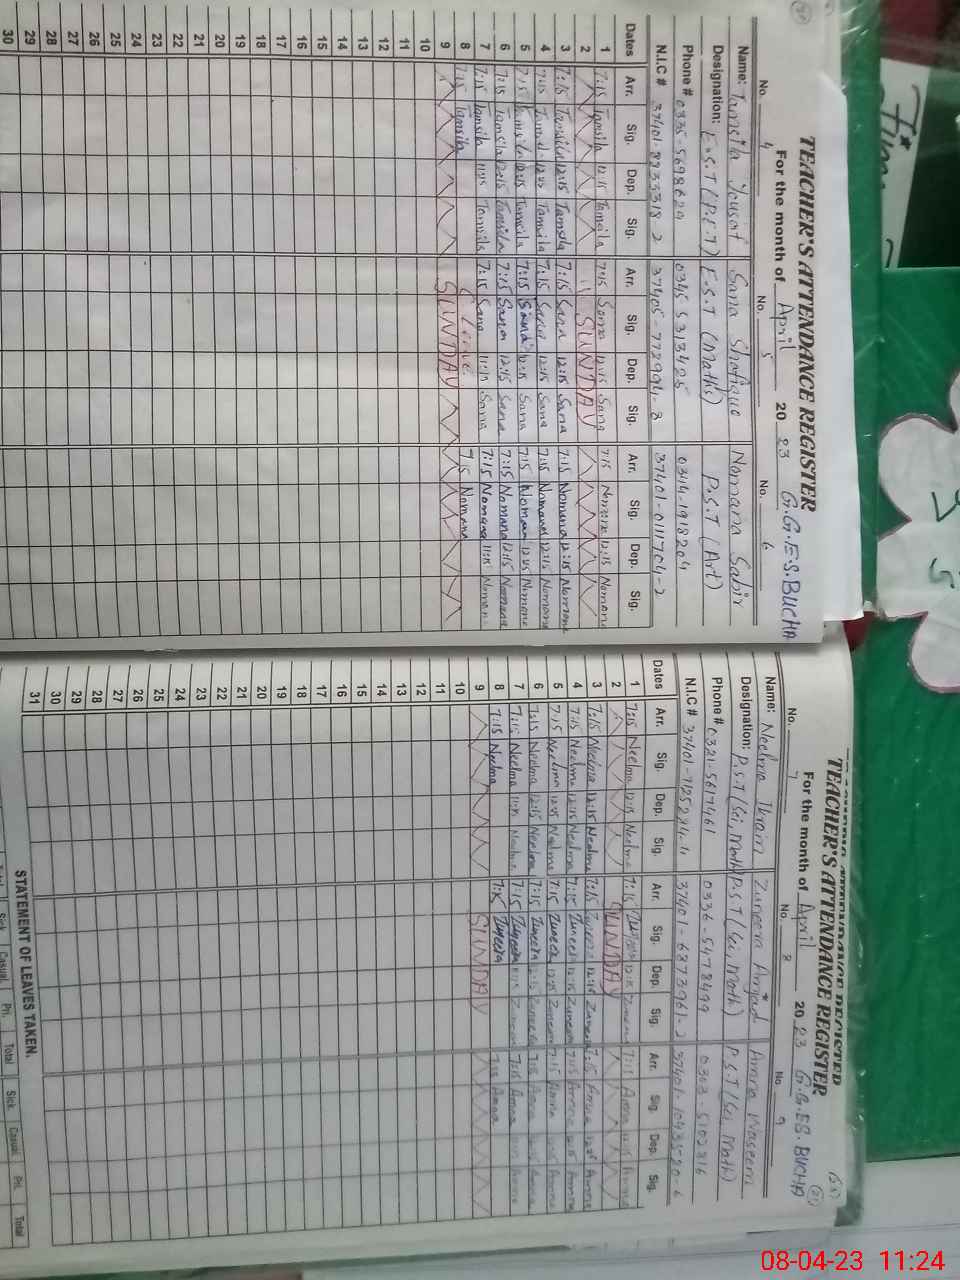 TEACHER'S ATTENDANCE REGISTER G.G.E.S. BUCHA
For the month of April 20 23
No. 4 No. 5 No. 6
Name: Tamsila Yousaf Sana Shafique Nomana Sabir
Designation: E.S.T (P.E.T) E.S.T (Maths) P.S.T (Art)
Phone # 0335-5698629 0345 5313425 0314-1918204
N.I.C #
Dates Arr. Sig. Dep. Sig. Arr. Sig. Dep. Sig. Arr. Sig. Dep. Sig.
1 7:15 Tamsila 12:15 Tamsila 7:15 Sana 12:15 Sana 7:15 Nomana 12:15 Nomana
2 SUNDAY
3 7:15 Tamsila 12:15 Tamsila 7:15 Sana 12:15 Sana 7:15 Nomana 12:15 Nomana
4 7:15 Tamsila 12:15 Tamsila 7:15 Sana 12:15 Sana 7:15 Nomana 12:15 Nomana
5 7:15 Tamsila 12:15 Tamsila 7:15 Sana 12:15 Sana 7:15 Nomana 12:15 Nomana
6 7:15 Tamsila 12:15 Tamsila 7:15 Sana 12:15 Sana 7:15 Nomana 12:15 Nomana
7 7:15 Tamsila 11:15 Tamsila 7:15 Sana 11:15 Sana 7:15 Nomana 11:15 Nomana
8 7:15 Tamsila Leave 7:15 Nomana
9 SUNDAY
10
11
12
13
14
15
16
17
18
19
20
21
22
23
24
25
26
27
28
29
30
TEACHER'S ATTENDANCE REGISTER
TEACHER'S ATTENDANCE REGISTER G.G.E.S. BUCHA
For the month of April 20 23
No. 7 No. 8 No. 9
Name: Neelma Ikram Zuneera Amjad Amna Waseem
Designation: P.S.T (Sci, Math) P.S.T (Sci, Math) P.S.T (Sci, Math)
Phone # 0321-5617461 0336-5478499 0303-5102816
N.I.C # 37401-6873961-2
Dates Arr. Sig. Dep. Sig. Arr. Sig. Dep. Sig. Arr. Sig. Dep. Sig.
1 7:15 Neelma 12:15 Neelma 7:15 Zuneera 12:15 Zuneera 7:15 Amna 12:15 Amna
2 SUNDAY
3 7:15 Neelma 12:15 Neelma 7:15 Zuneera 12:15 Zuneera 7:15 Amna 12:15 Amna
4 7:15 Neelma 12:15 Neelma 7:15 Zuneera 12:15 Zuneera 7:15 Amna 12:15 Amna
5 7:15 Neelma 12:15 Neelma 7:15 Zuneera 12:15 Zuneera 7:15 Amna 12:15 Amna
6 7:15 Neelma 12:15 Neelma 7:15 Zuneera 12:15 Zuneera 7:15 Amna 12:15 Amna
7 7:15 Neelma 11:15 Neelma 7:15 Zuneera 11:15 Zuneera 7:15 Amna 11:15 Amna
8 7:15 Neelma 7:15 Zuneera 7:15 Amna
9 SUNDAY
10
11
12
13
14
15
16
17
18
19
20
21
22
23
24
25
26
27
28
29
30
31
STATEMENT OF LEAVES TAKEN.
Sick Casual Pri. Total Sick Casual Pri. Total
08-04-23 11:24